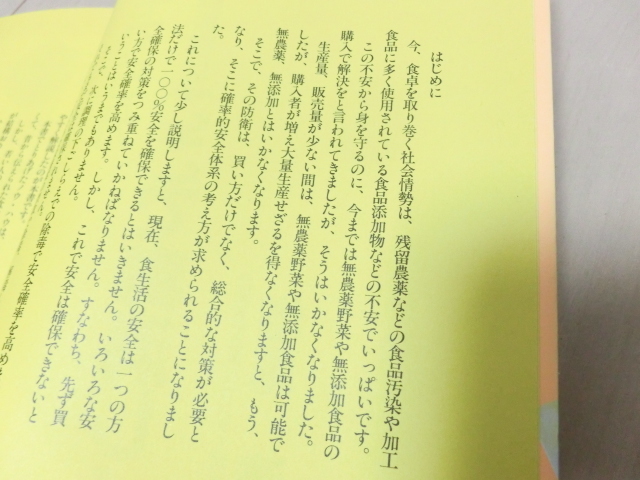 はじめに
今、食卓を取り巻く社会情勢は、残留農薬などの食品汚染や加工
食品に多く使用されている食品添加物などの不安でいっぱいです。
この不安から身を守るのに、今までは無農薬野菜や無添加食品の
購入で解決をと言われてきましたが、そうはいかなくなりました。
生産量、販売量が少ない間は、無農薬野菜や無添加食品は可能で
したが、購入者が増え大量生産せざるを得なくなりますと、もう、
無農薬、無添加とはいかなくなります。
そこで、その防衛は、買い方だけでなく、総合的な対策が必要と
なり、そこに確率的安全体系の考え方が求められることになりまし
た。
これについて少し説明しますと、現在、食生活の安全は一つの方
法だけで一〇〇％安全を確保できるとはいきません。いろいろな安
全確保の対策をつみ重ねていかねばなりません。すなわち、先ず買
い方で安全確率を高めます。しかし、これで安全は確保できないと
いうことはいうまでもありません。
の除毒で安全確率を高めま